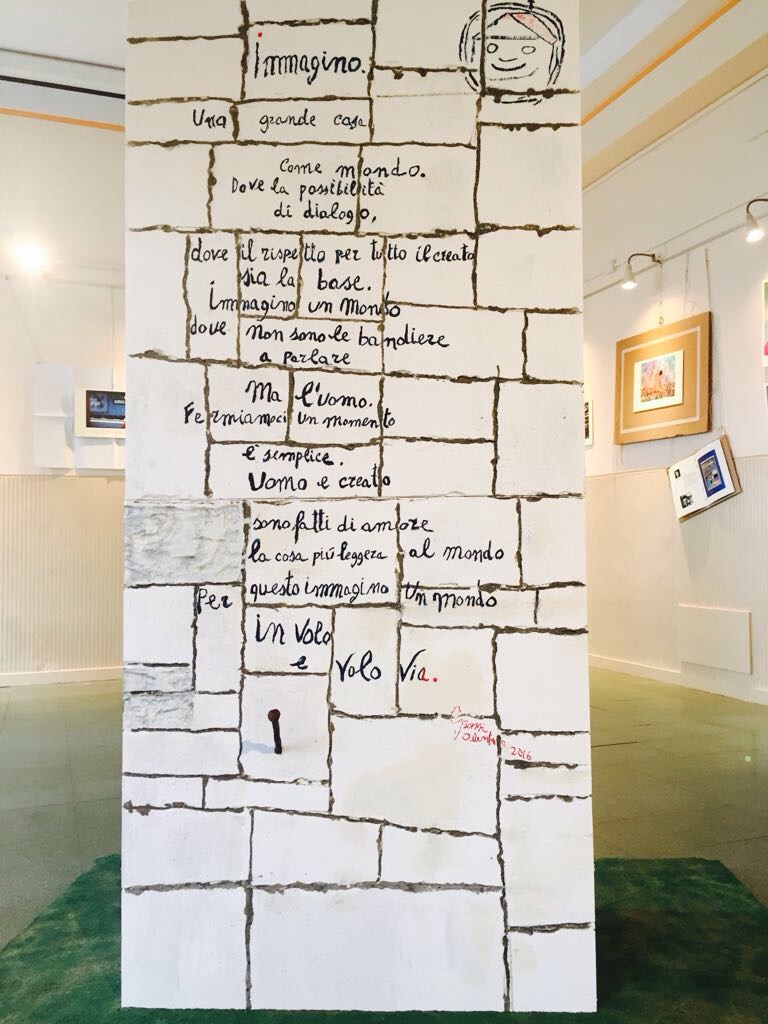 Immagino.
Una grande casa
Come mondo.
Dove la possibilità
di dialogo,
dove il rispetto per tutto il creato
sia la base.
Immagino un Mondo
dove non sono le bandiere
a parlare
Ma l'uomo.
Fermiamoci un momento
è semplice.
Uomo e creato
sono fatti di amore
la cosa più leggera al mondo
Per questo immagino Un mondo
in Volo
e Volo Via.
2016